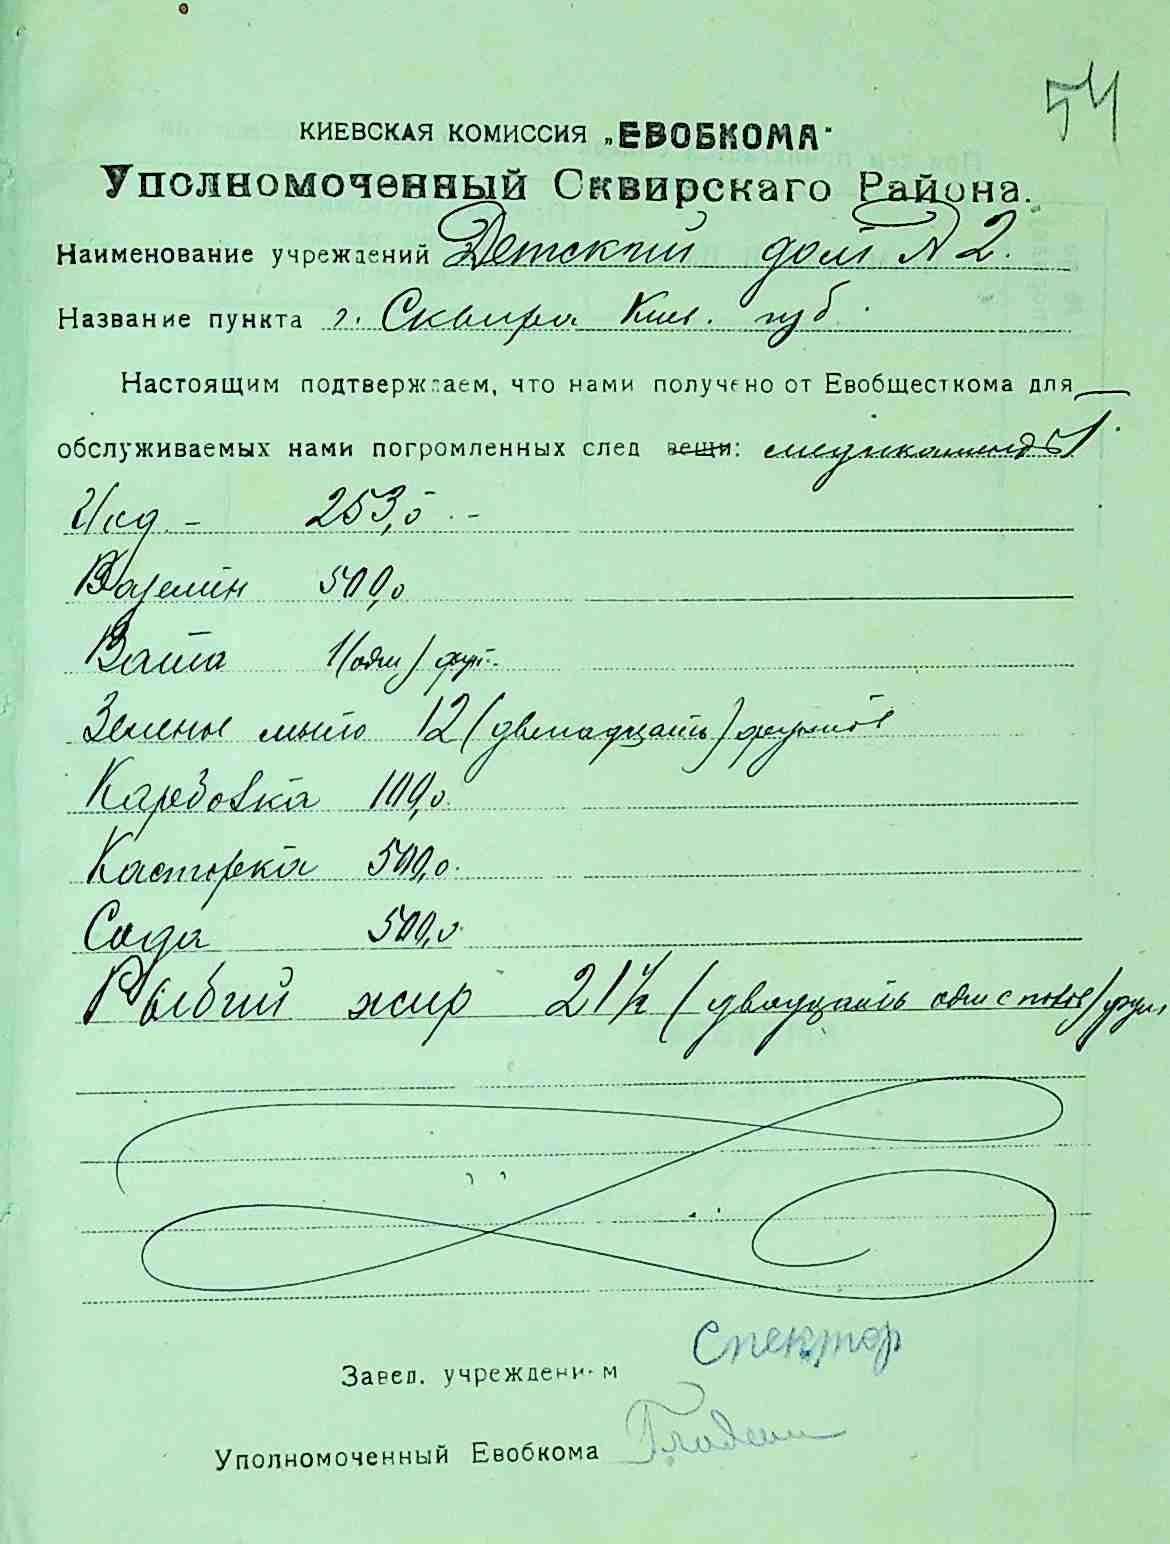 54
КИЕВСКАЯ КОМИССИЯ „ЕВОБКОМА"
Уполномоченный Сквирскаго Района.
Наименование учреждений Детский дом № 2.
Название пункта г. Сквира Киев. губ.
Настоящим подтверждаем, что нами получено от Евобщесткома для
обслуживаемых нами погромленных след вещи: медикаменты
Иод - 253,0 -
Вазелин 500,0
Вата 1 (один) фун.
Зеленое мыло 12 (двенадцать) фунтов
Карболка 100,0.
Касторка 500,0.
Сода 500,0
Рыбий жир 21½ (двадцать один с полов) фун.
Спектор
Завед. учреждением
Уполномоченный Евобкома